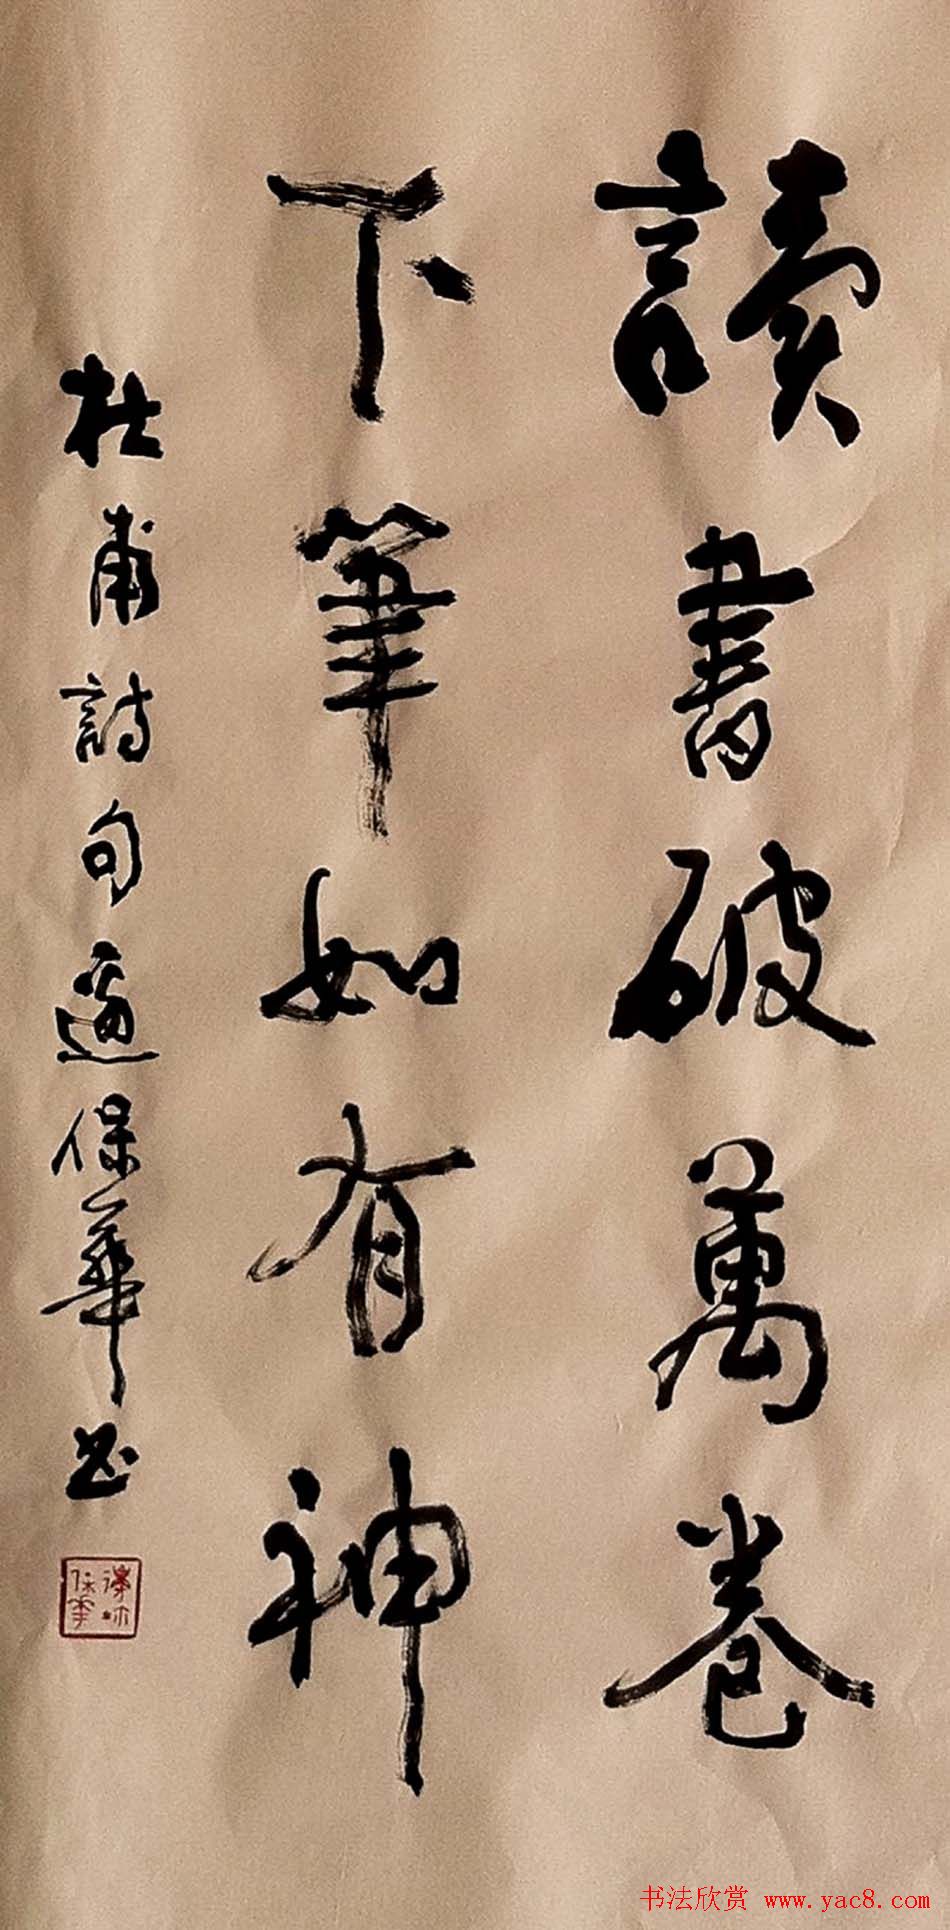 讀書破萬卷
下筆如有神
杜甫詩句邊保華書
书法欣赏 www.yac8.com